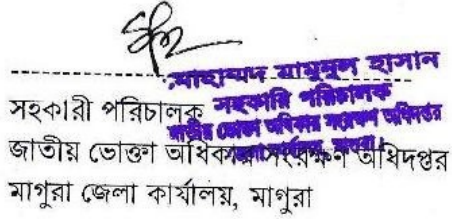 মোহাম্মদ মামুনুল হাসান
সহকারি পরিচালক
জাতীয় ভোক্তা অধিকার সংরক্ষণ অধিদপ্তর
জেলা কার্যালয়, মাগুরা।
সহকারী পরিচালক
জাতীয় ভোক্তা অধিকার সংরক্ষণ অধিদপ্তর
মাগুরা জেলা কার্যালয়, মাগুরা